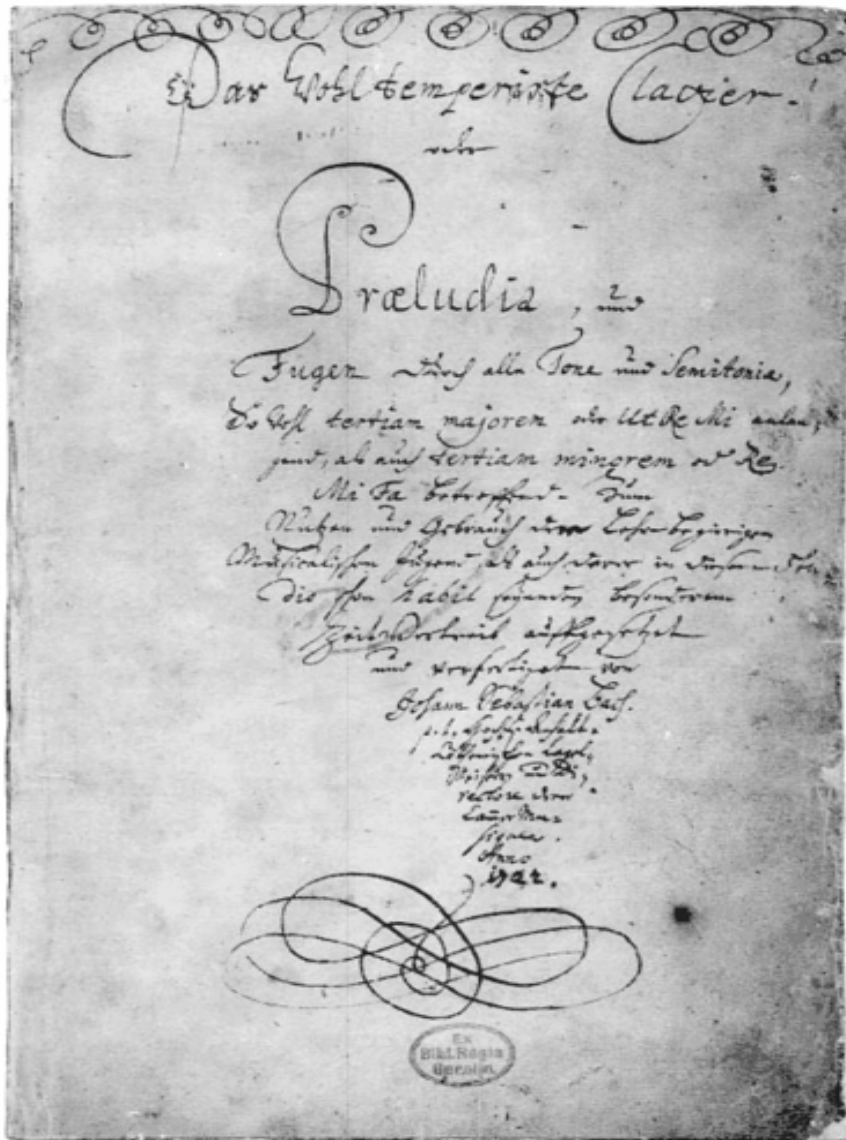 Das Wohltemperirte Clavier.
oder
Præludia, und
Fugen durch alle Tone und Semitonia,
So wohl tertiam majorem oder Ut Re Mi anlan,
gend, als auch tertiam minorem oder Re
Mi Fa betreffend. Zum
Nutzen und Gebrauch der Lehrbegierigen
Musicalischen Jugend, als auch derer in diesem stu
dio schon habil seyenden besonderem
ZeitVertreib auffgesetzet
und verfertiget von
Johann Sebastian Bach.
p. t. Hochfürstl. Anhalt-
Cöthenischen Capel,
Meistern und Di,
rectore derer
Cammer Mu-
siquen.
Anno
1722.
Ex
Bibl. Regia
Berolin.